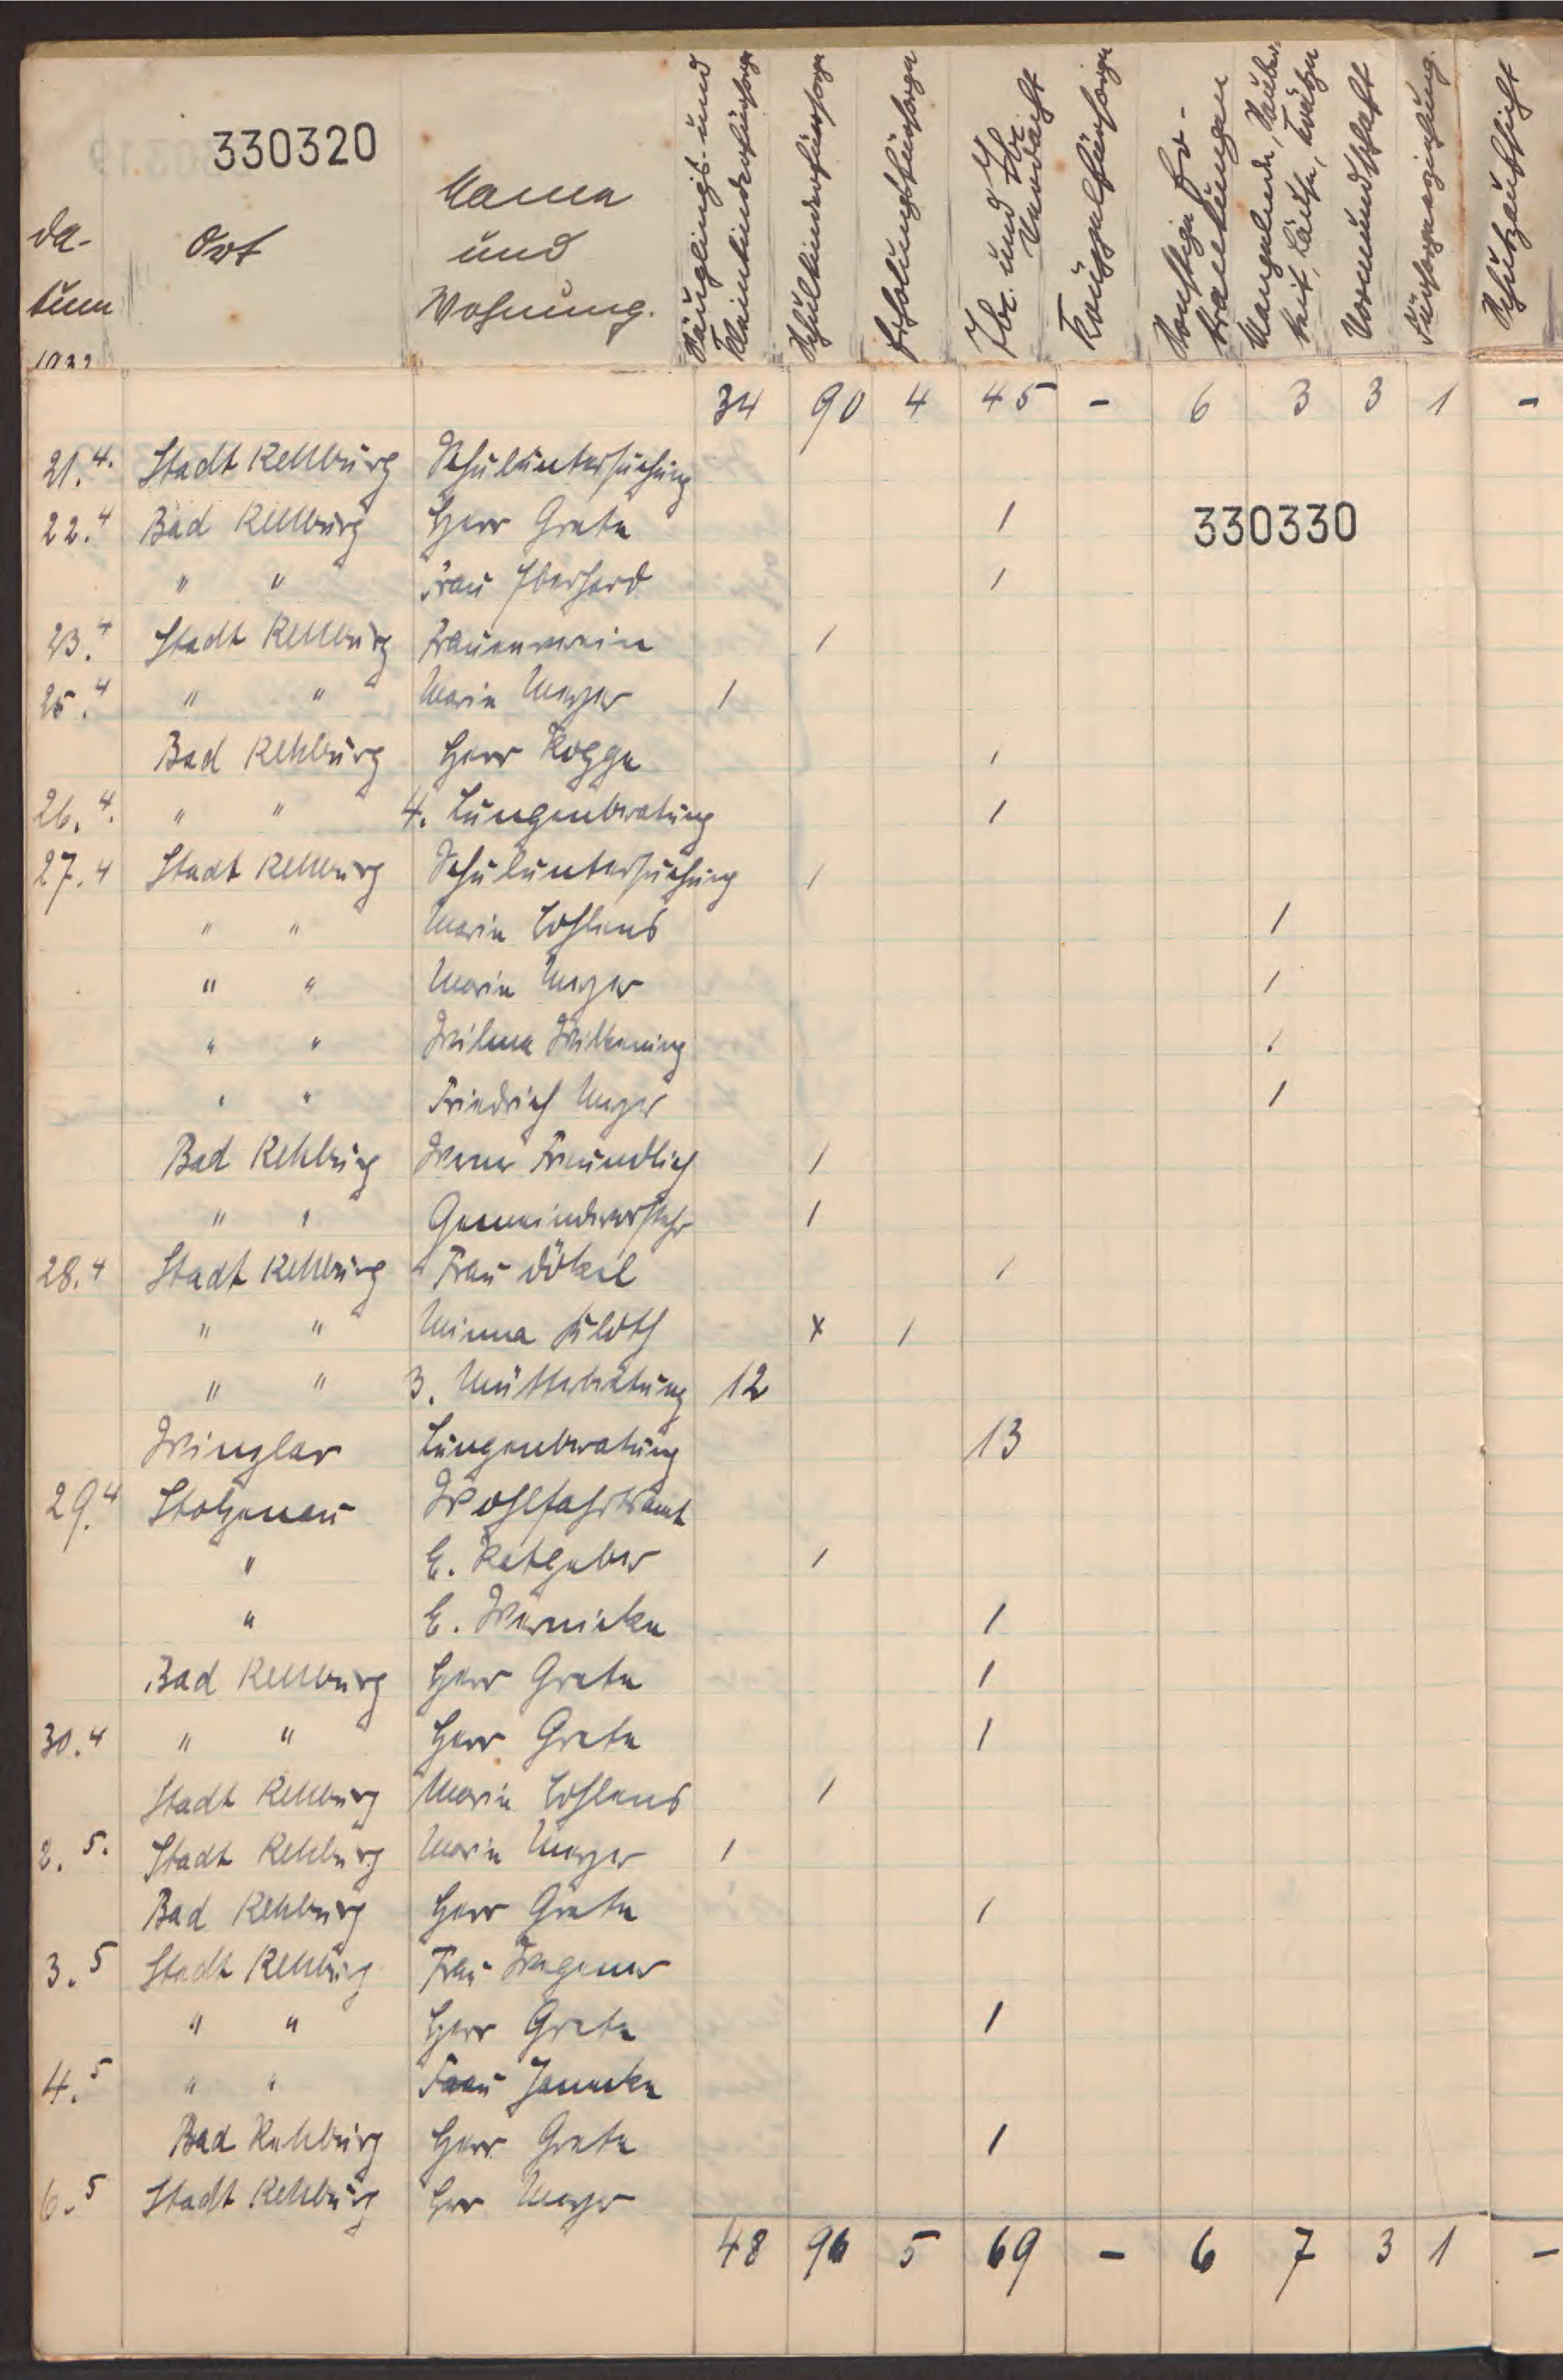 330320
Da-
tum
1932
Ort
Name
und
Wohnung.
Säuglings- und
Kleinkinderfürsorge
Schulkinderfürsorge
Erholungsfürsorge
Tbc. und Tbc.
Verdacht
Krüppelfürsorge
Sonstige Er-
krankungen
Mangelnde Sauber-
keit, Läuse, Krätze
Vormundschaft
Fürsorgeerziehung.
Schutzaufsicht
34 90 4 45 - 6 3 3 1 -
21.4. Stadt Rehburg Schuluntersuchung
22.4 Bad Rehburg Herr Grete 1
330330
" " Frau Eberhard 1
23.4 Stadt Rehburg Frauenverein 1
25.4 " " Marie Meyer 1
Bad Rehburg Herr Rogge 1
26.4. " " 4. Lungenberatung 1
27.4 Stadt Rehburg Schuluntersuchung 1
" " Marie Lohlens 1
" " Marie Meyer 1
" " Wilma Wilkening 1
" " Friedrich Meyer 1
Bad Rehburg Werner Freundlich 1
" " Gemeindevorsteher 1
28.4 Stadt Rehburg Frau Dökel 1
" " Minna Kloth x 1
" " 3. Mütterberatung 12
Winzlar Lungenberatung 13
29.4 Stolzenau Wohlfahrtsamt
" E. Ratgeber 1
" E. Wernicke 1
Bad Rehburg Herr Grete 1
30.4 " " Herr Grete 1
Stadt Rehburg Marie Lohlens 1
2.5. Stadt Rehburg Marie Meyer 1
Bad Rehburg Herr Grete 1
3.5 Stadt Rehburg Frau Wegener
" " Herr Grete 1
4.5 " " Frau Janneke
Bad Rehburg Herr Grete 1
6.5 Stadt Rehburg Herr Meyer
48 96 5 69 - 6 7 3 1 -